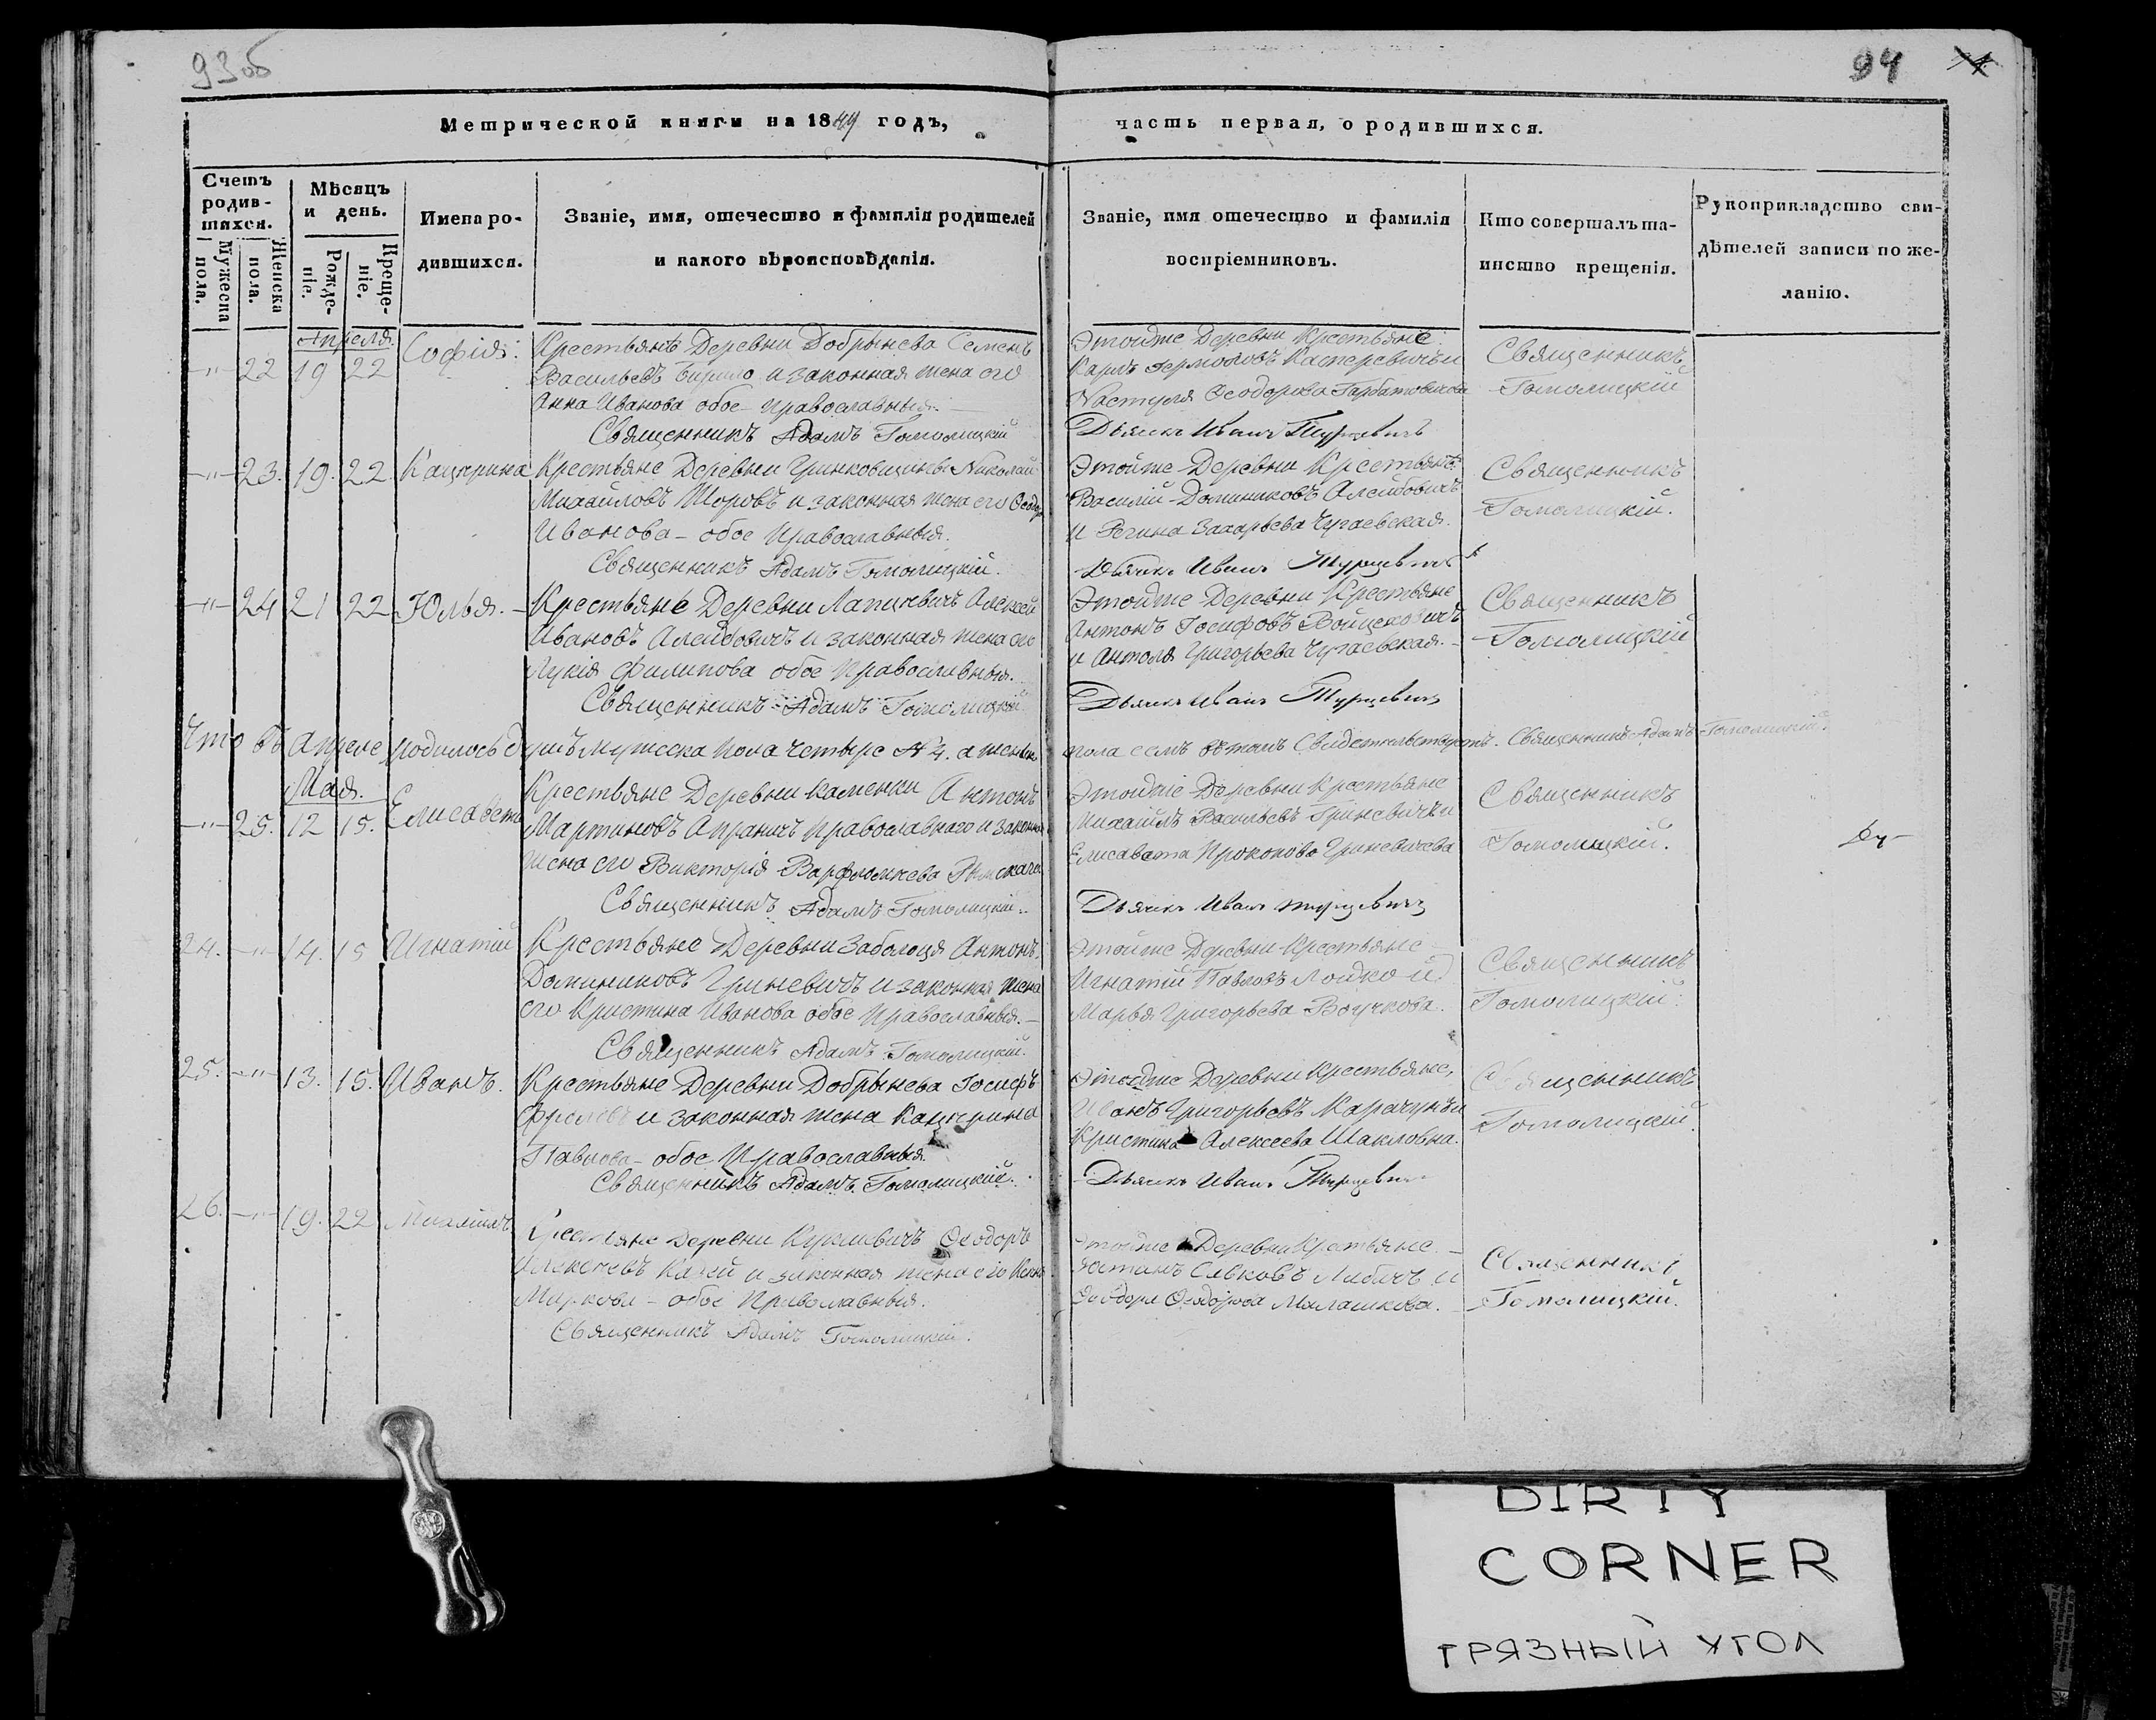 93 об
94
Метрической книги на 1844 годъ,
часть первая, о родившихся.
Счетъ родив-шихся.
Мужеска пола.
Женска пола.
Мѣсяцъ и день.
Рожде-ніе.
Креще-ніе.
Имена ро-
дившихся.
Званіе, имя, отечество и фамилія родителей
и какого вѣроисповѣданія.
Званіе, имя отечество и фамилія
воспріемниковъ.
Кто совершалъ та-
инство крещенія.
Рукоприкладство сви-
дѣтелей записи по же-
ланію.
Апреля
-"- 22 19 22 Софія.
Крестьянъ Деревни Добрынева Семенъ
Васильевъ Бирило и законная жена его
Анна Иванова обое православныя.
Священникъ Адамъ Гомолицкій
Этойже Деревни Крестьяне
Карпъ
Настуля Ѳеодорова
Дьячкъ Иванъ Турцевичъ
Священникъ
Гомолицкій
-"- 23. 19. 22. Кацерина
Крестьяне Деревни Гринковщины Николай
Михайловъ Шоровъ и законная жена его
Иванова - обое Православныя.
Священникъ Адамъ Гомолицкій.
Этойже Деревни Крестьяне
Василій Доминиковъ Алейбовичъ
и Регина Захарьева Чугаевская.
Дьячкъ Иванъ Турцевичъ
Священникъ
Гомолицкій.
-"- 24 21 22 Юлья.
Крестьяне Деревни Лапицевичъ Алексей
Ивановъ Алейбовичъ и законная жена его
Луцкія Филипова обое Православныя.
Священникъ Адамъ Гомолицкій
Этойже Деревни Крестьяне
Антонъ Іосифовъ Войцеховичъ
и Антоля Григорьева Чугаевская.
Дьячкъ Иванъ Турцевичъ
Священникъ
Гомолицкій
Что въ Апреле родилось душъ мужеска пола четыре №4. а женска
пола семъ вътомъ Свидетельствуемъ. Священникъ Адамъ Гомолицкій.
Мая.
-"- 25. 12 15. Елисавета
Крестьяне Деревни Каменки Антонъ
Мартиновъ православнаго и законная
жена его Викторія Варфоломеева
Священникъ Адамъ Гомолицкій.
Этойже Деревни Крестьяне
Михаилъ Васильевъ Гриневичъ и
Елисавета Прокопова Гриневичева
Дьячкъ Иванъ Турцевичъ
Священникъ
Гомолицкій.
24. -"- 14. 15 Игнатій
Крестьяне Деревни Заболоця Антонъ
Доминиковъ Гриневичъ и законная жена
его Кристина Иванова обое Православныя.
Священникъ Адамъ Гомолицкій.
Этойже Деревни Крестьяне
Игнатій Павловъ Лойко и
Марья Григорьева
Священникъ
Гомолицкій.
25. -"- 13. 15. Иванъ.
Крестьяне Деревни Добрынева Іосифъ
и законная жена Кацерина
Павлова - обое Православныя.
Священникъ Адамъ Гомолицкій.
Этойже Деревни Крестьяне,
Иванъ Григорьевъ Карачунъ и
Кристина Алексеева Шакловна.
Дьячкъ Иванъ Турцевичъ
Священникъ
Гомолицкій.
26. -"- 19. 22 Михаилъ
Крестьяне Деревни Ѳеодоръ
и законная жена его
Маркова - обое Православныя.
Священникъ Адамъ Гомолицкій.
Этойже Деревни Крестьяне
и
Ѳеодора Ѳеодорова Малашкова.
Священникъ
Гомолицкій.
DIRTY
CORNER
ГРЯЗНЫЙ УГОЛ